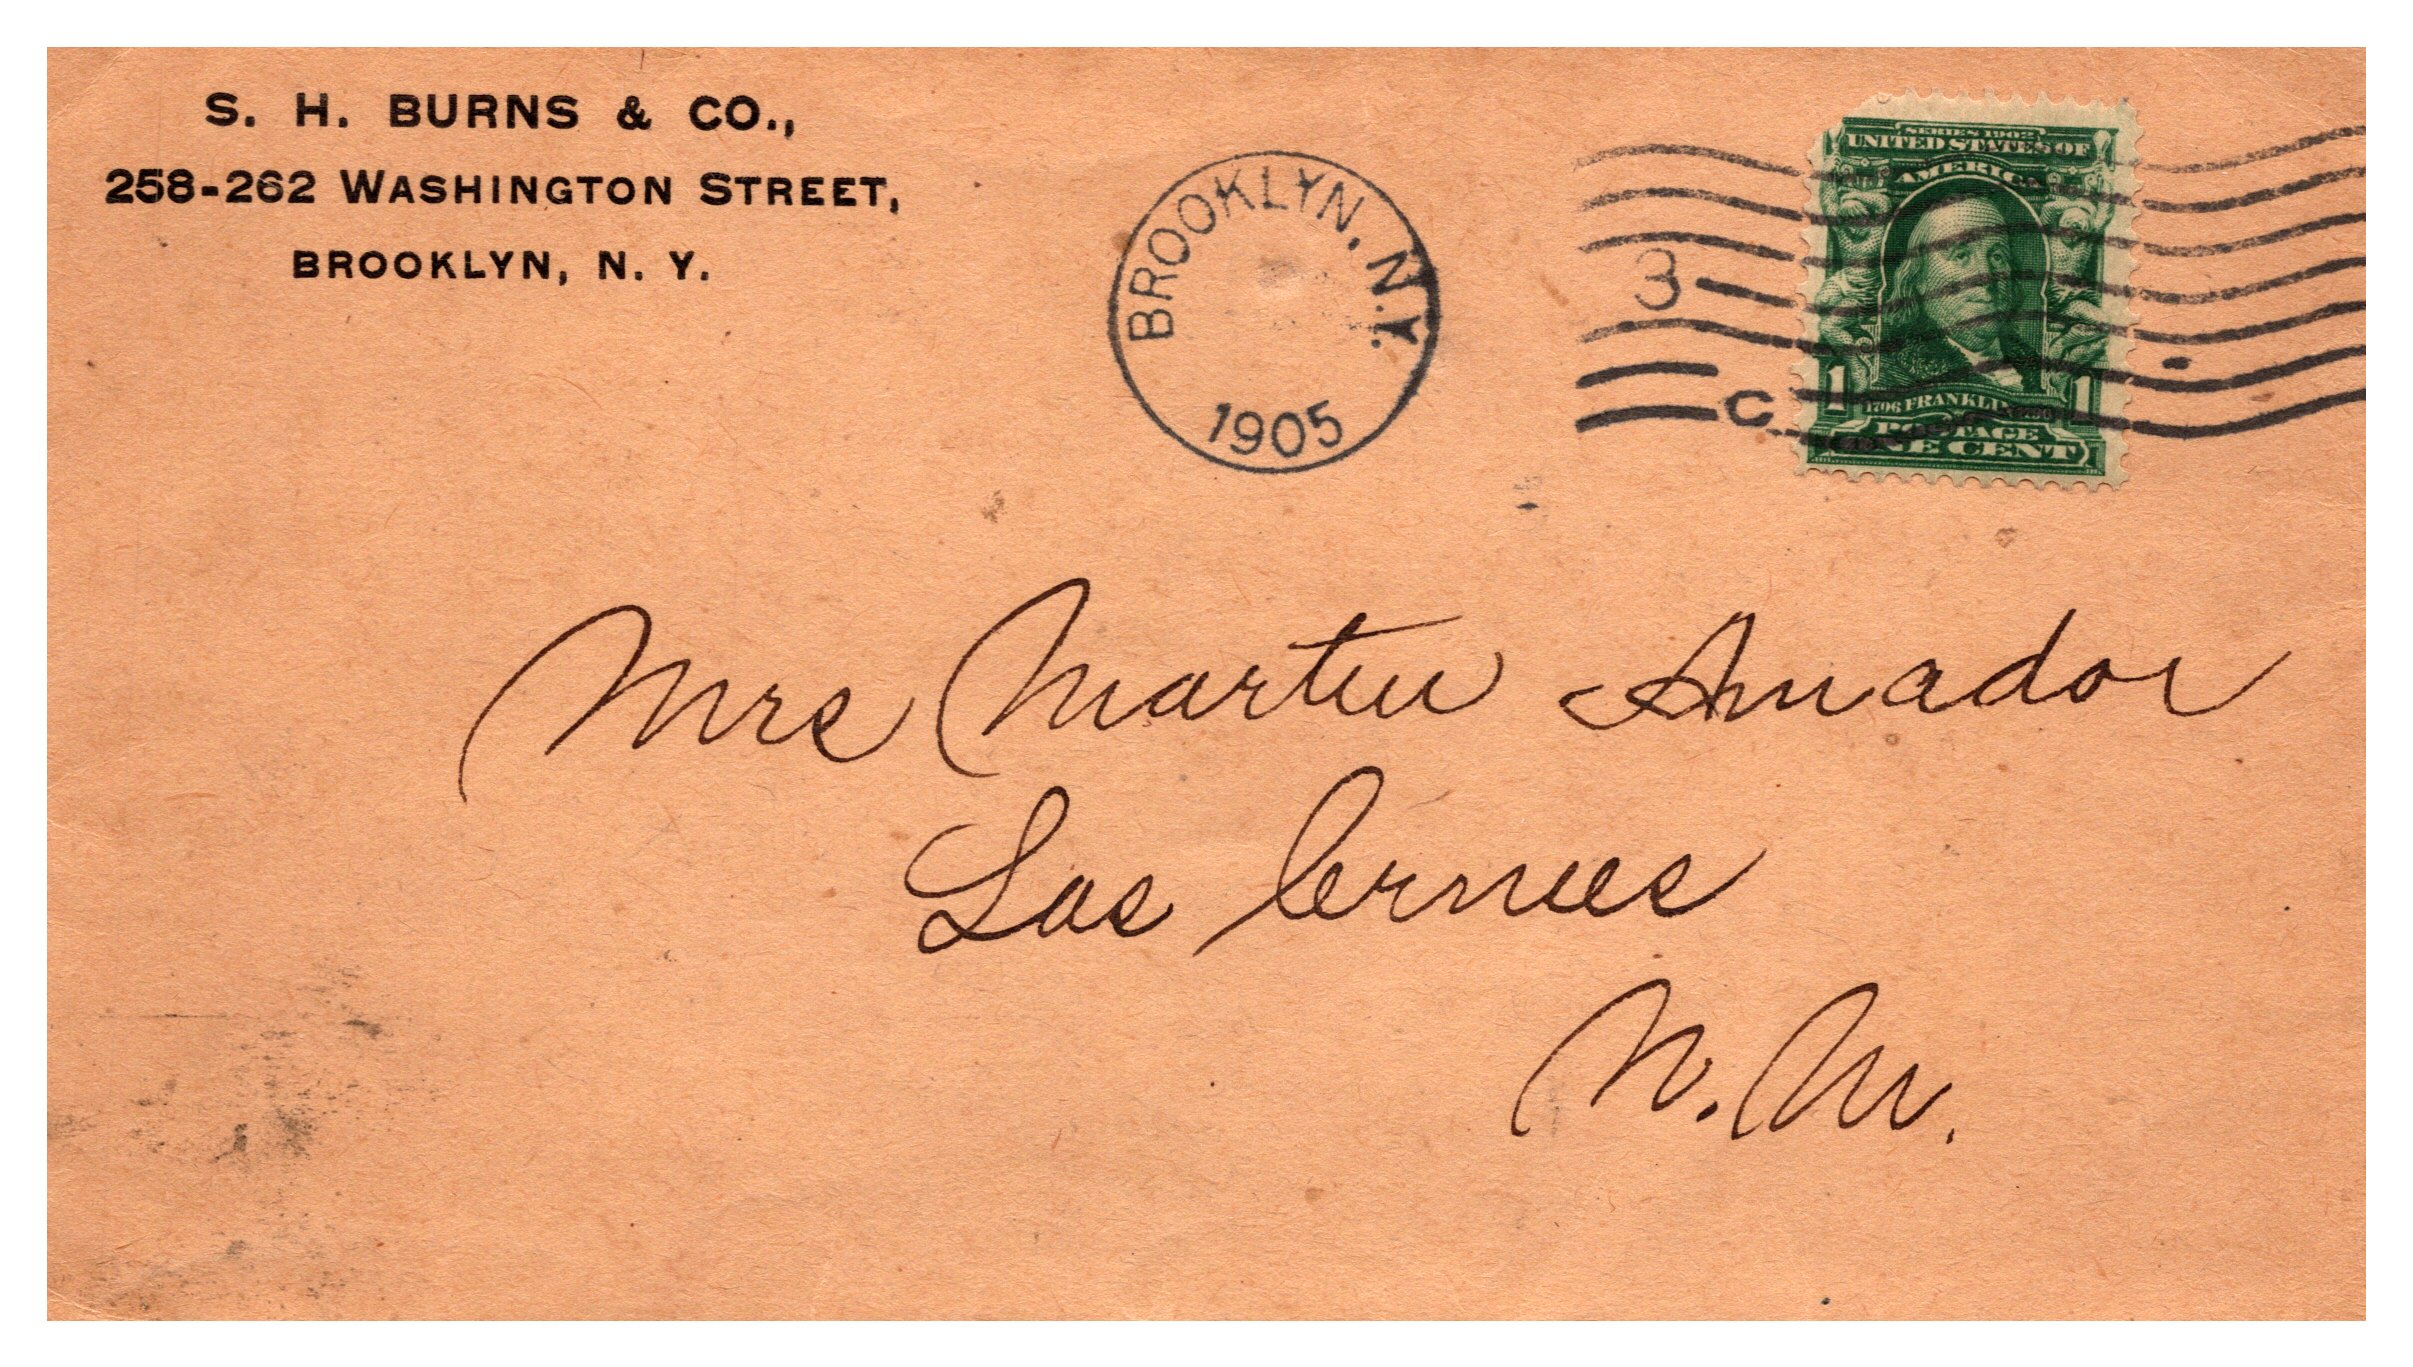 S. H. BURNS & CO.,
258-262 WASHINGTON STREET,
BROOKLYN, N. Y.
BROOKLYN, N.Y.
1905
3
C
SERIES 1902
UNITED STATES OF
AMERICA
1 1
1706 FRANKLIN 1790
POSTAGE
ONE CENT
Mrs Martin Amador
Las Cruces
N. M.